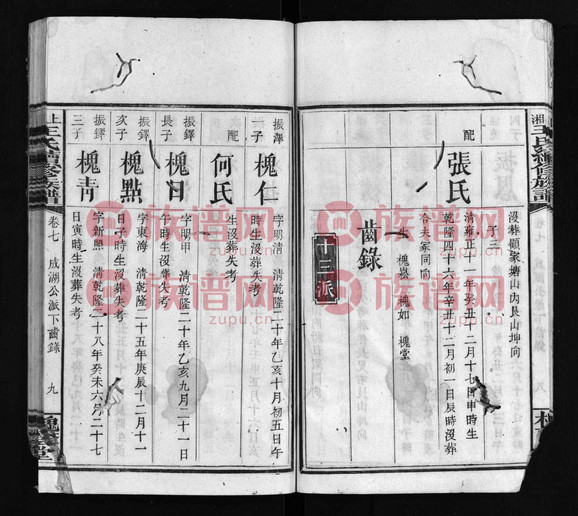 沒葬顧家塘山內艮山坤向
子三
配
張氏
清雍正十一年癸丑十二月十七日申時生
乾隆四十六年辛丑十二月初一日辰時沒葬
合夫冢同向
生
槐嶽 槐如 槐堂
齒錄
十三派
振澤
一子
槐仁
字明清 清乾隆二十年乙亥十月初五日午
時生沒葬失考
配
何氏
生沒葬失考
振鐸
長子
槐日
字明甲 清乾隆二十年乙亥九月二十一日
午時生沒葬失考
振鐸
次子
槐點
字東海 清乾隆二十五年庚辰十二月十一
日子時生沒葬失考
振鐸
三子
槐青
字新照 清乾隆二十八年癸未六月二十七
日寅時生沒葬失考
上王氏續修族譜
卷七 成湖公派下齒錄
九
槐
堂
湘
王氏續修族譜
族谱网
zupu.cn